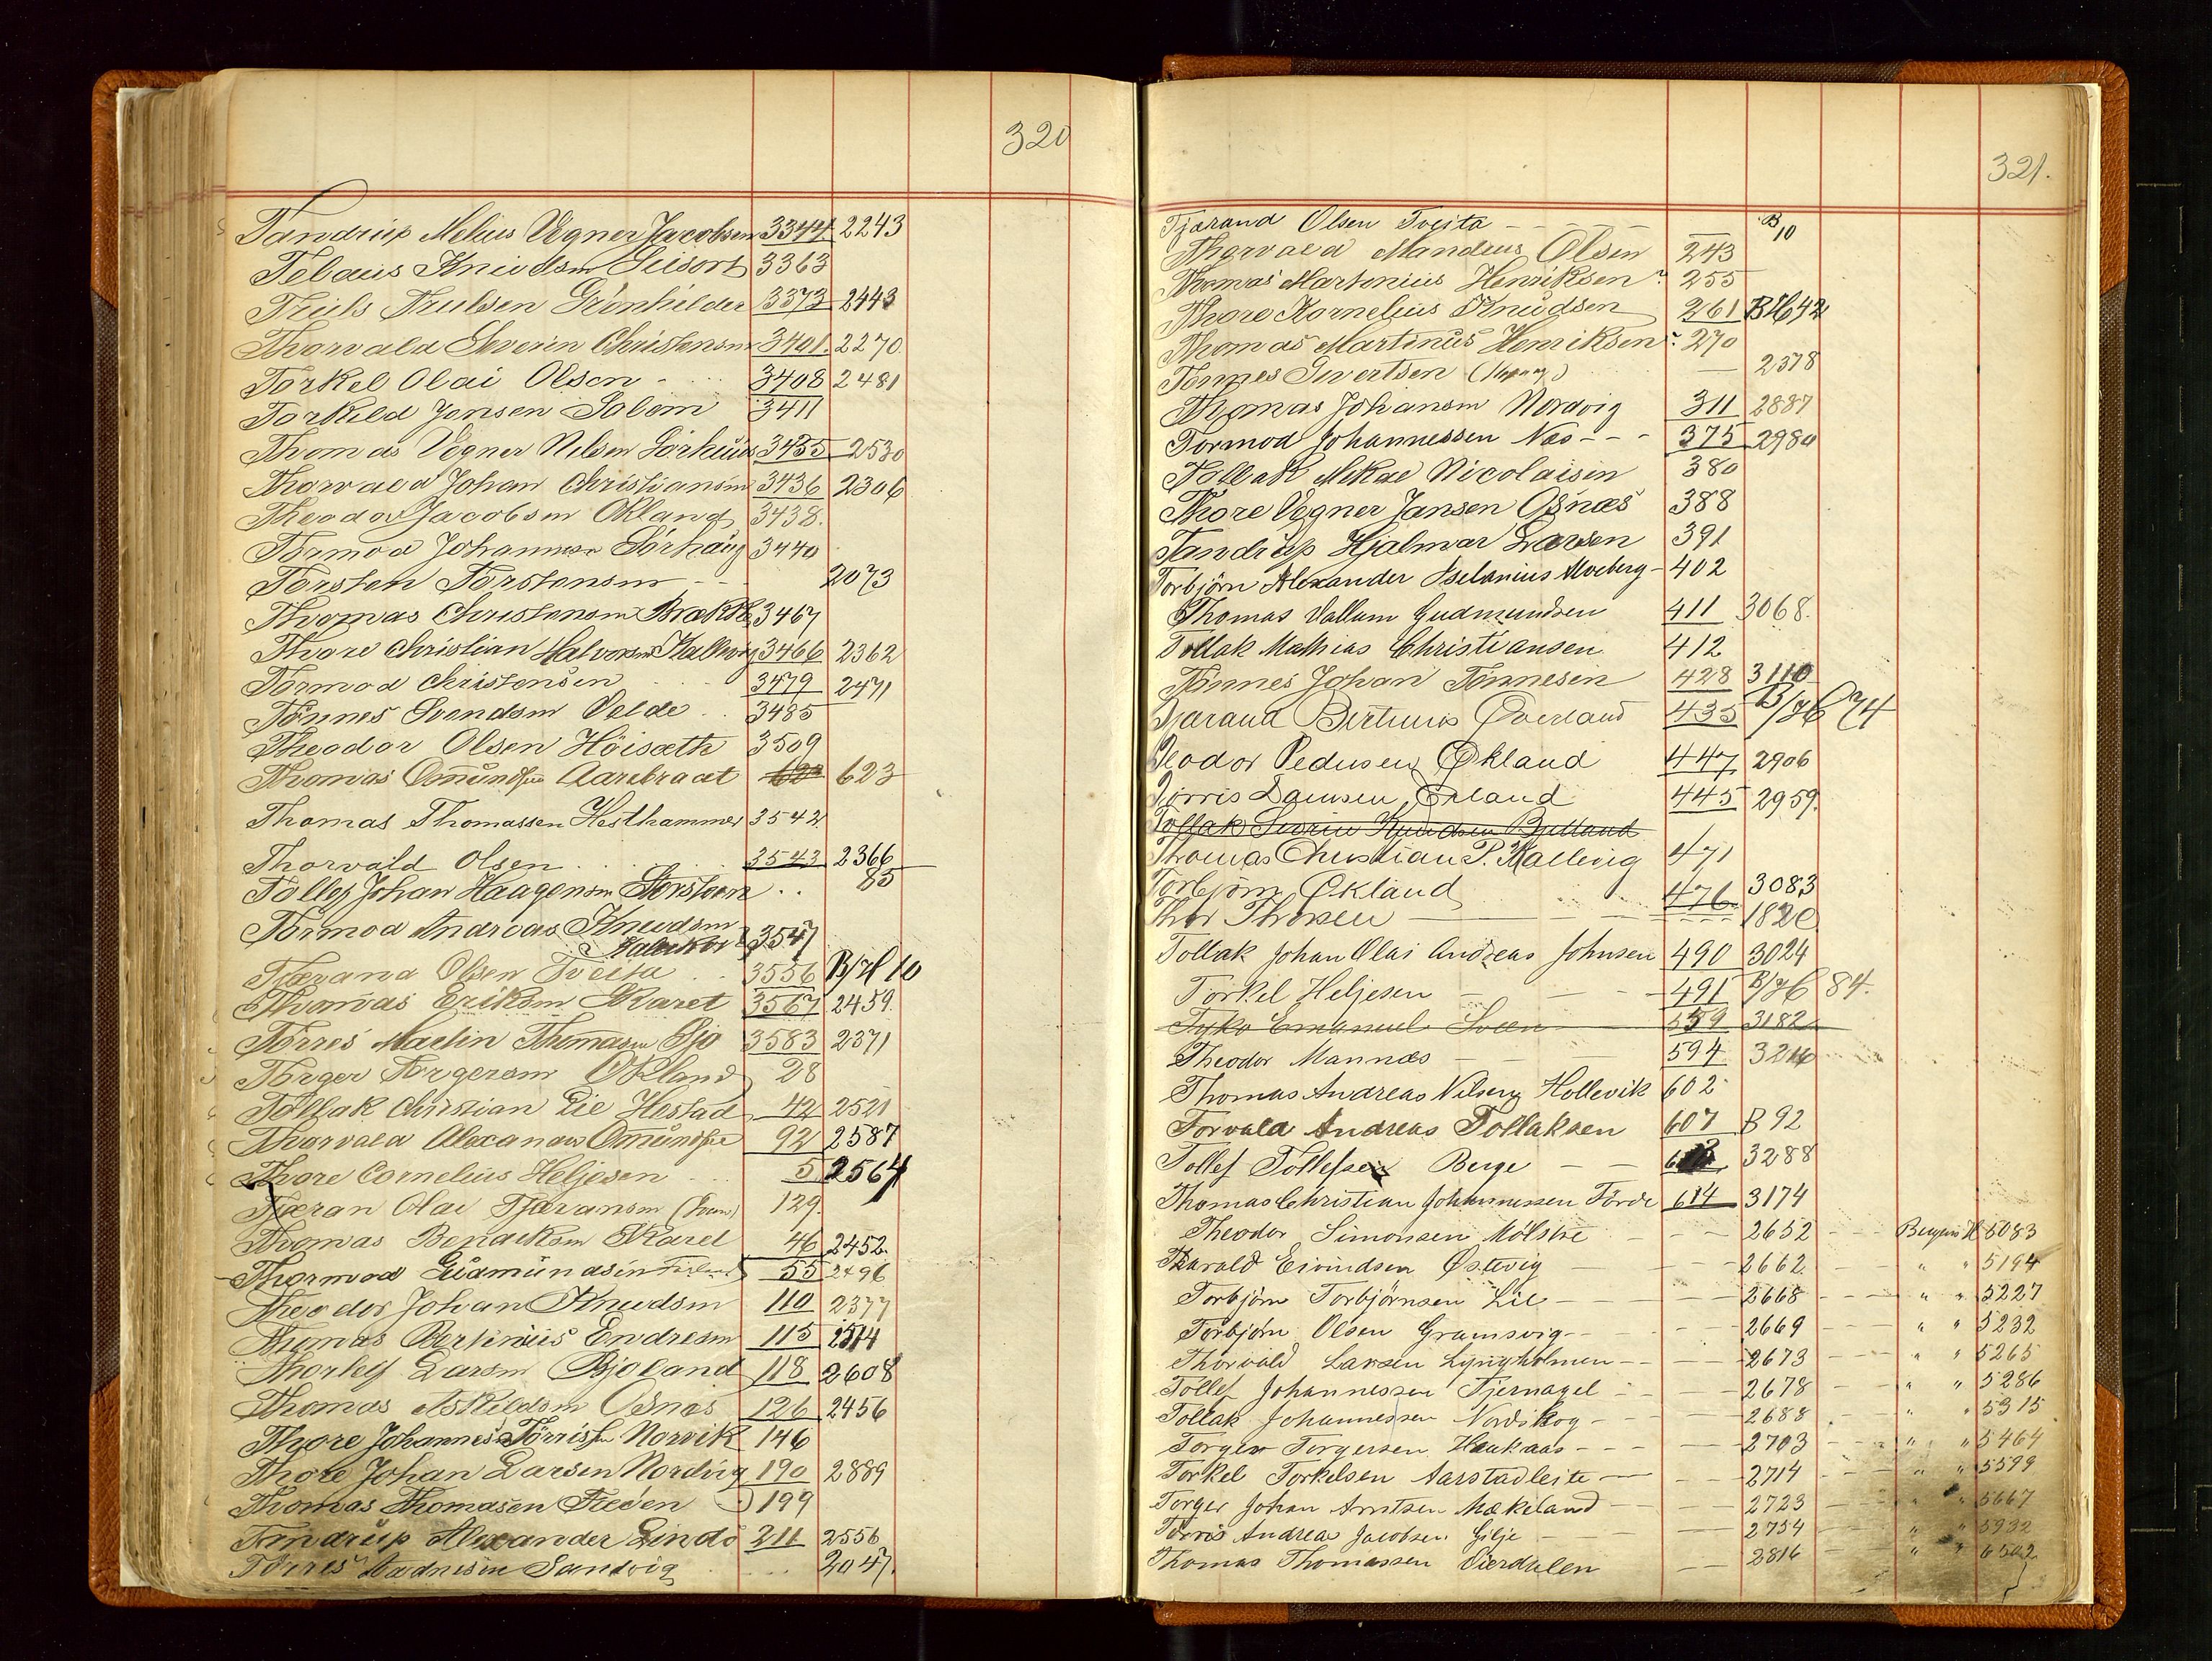 320
Tandrup Melius Vegner Jacobsen 3344 2243
Tebaus Knudsen 3363
Truls Trulsen Grönhilder 3373 2443
Thorvald Severin Christensen 3401 2270
Torkel Olai Olsen 3408 2481
Torkild Jensen Salom 3411
Thomas Vegner Nilsen Sörhuus 3455 2530
Thorvald Johan Christiansen 3436 2306
Theodor Jacobsen Økland 3438
Tormod Johannesen Sörhaug 3440
Torsten Torstensen 2073
Thomas Christensen Brekke 3467
Thore Christian Halvorsen Kallevig 3466 2362
Tormod Christensen 3479 2471
Tönnes Svendsen Velde 3485
Theodor Olsen Höisæth 3509
Thomas Omundsen Aarebraat 623 623
Thomas Thomassen Hesthammer 3542
Thorvald Olsen 3543 2366
Tollef Johan Haagensen Storsteen 85
Tormod Andreas Knudsen 3547
Tjærand Olsen Tveita 3556 B/H 10
Thomas Eriksen Skaret 3567 2459
Törres Martin Thomasen Sjo 3583 2371
Torger Torgersen Økland 28
Tollak Christian Lie Hestad 42 2521
Thorvald Alexander Omundsen 92 2587
Thore Cornelius Heljesen 5 2564
Tjæran Olai Tjæransen 129
Thomas Bendiksen Skaret 46 2452
Thormod Gudmundsen 55 2496
Theodor Johan Knudsen 110 2377
Thomas Bertinius Endresen 115 2514
Thorlef Larsen Bjoland 118 2608
Thomas Askildsen Osnes 126 2456
Thore Johannes Törrisen Norvik 146
Thore Johan Larsen Nordvig 190 2889
Thomas Thomasen Steden 199
Tandrup Alexander Lindö 211 2556
Törres Aadnesen Sandvig 2047
321.
Tjærand Olsen Tveita B/10
Thorvald Mandius Olsen 243
Thomas Martinius Henriksen 255
Thore Kornelius Knudsen 261 B/H 42
Thomas Martinus Henriksen 270
Tönnes Sivertsen 2378
Thomas Johansen Nordvig 311 2887
Tormod Johannessen Næs 375 2980
Tollak Mikal Nicolaisen 380
Thore Vegner Jansen Osnæs 388
Tandrup Hjalmar Larsen 391
Torbjörn Alexander Iselanius Moeberg 402
Thomas Vallum Gudmundsen 411 3068
Tollak Mathias Christiansen 412
Tönnes Johan Tönnesen 428 3110
Tjærand Bertinius Øverland 435 B/H 74
Teodor Pedersen Økland 447 2906
Törris Larsen Erland 445 2959
Tollak Sverin Knudsen Bjelland
Thomas Christian P. Kallevig 471
Torbjörn Økland 476 3083
Thor Thorsen 1820
Tollak Johan Olai Andreas Johnsen 490 3024
Torkel Heljesen 491 B/H 84.
Tyko Emanuel Sveen 559 3182
Theodor Mannes 594 3216
Thomas Andreas Nilsen Hollevik 602
Torvald Andreas Tollaksen 607 B 92
Tollef Tollefsen Berge 3288
Thomas Christian Johannessen Förde 614 3174
Theodor Simonsen Mölstre 2652 Bergens H 5083
Harald Eivindsen Østevig 2662 " " 5194
Torbjörn Torbjörnsen Lie 2668 " " 5227
Torbjörn Olsen Gramsvig 2669 " " 5232
Thorvald Larsen Lyngholmen 2673 " " 5265
Tollef Johannessen Tjernagel 2678 " " 5286
Tollak Johannessen Nordskog 2688 " 5315
Torger Torgersen Haukaas 2703 " " 5464
Torkel Torkelsen Aarstadleite 2714 " " 5599
Torger Johan Arntsen Mækeland 2723 " " 5667
Törris Andreas Jacobsen Gilje 2754 " " 5932
Thomas Thomassen Vierdalen 2816 " " 6502